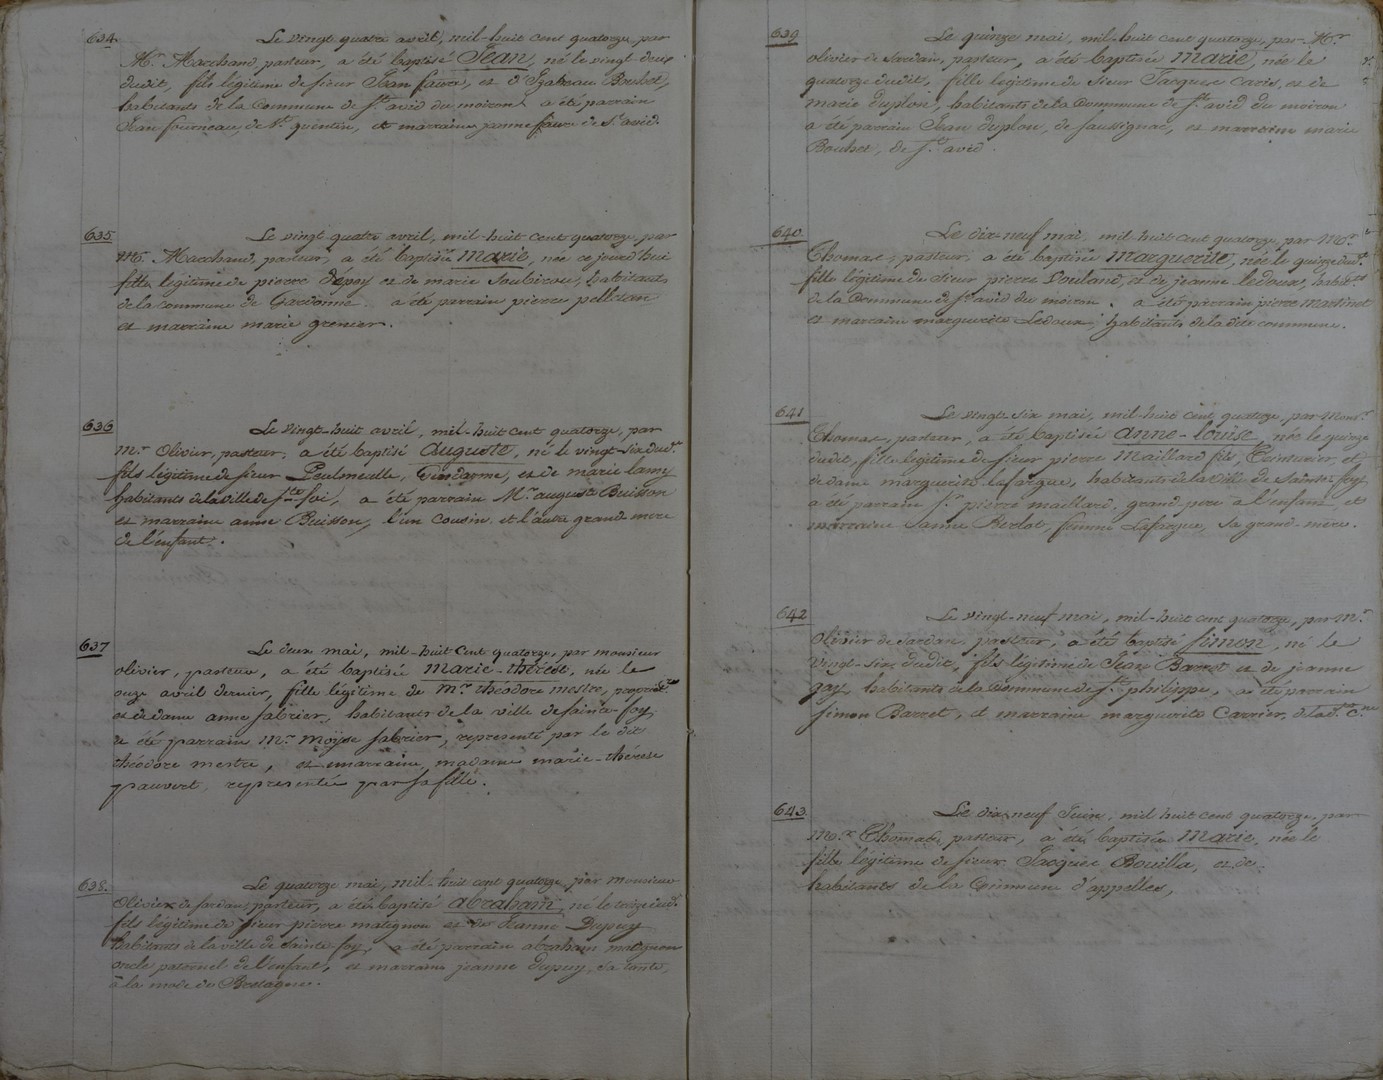 634. Le vingt quatre avril, mil-huit cent quatorze, par
Mr. Marchand, pasteur, a été baptisé Jean, né le vingt-deux
dudit, fils légitime de sieur Jean faure, et d'Izabeau Bouhet,
habitants de la Commune de St. avid du moiron a été parrain
Jean fourneau, de St. quentin, et marraine janne faure de St. avid.
635 Le vingt-quatre avril, mil-huit cent quatorze, par
Mr. Marchand, pasteur, a été baptisée Marie, née ce jourd'hui
fille légitime de pierre et de marie Soubiroux, habitants
de la Commune de Gardonne. a été parrain pierre pellisson
et marraine marie grenier.
636 Le vingt-huit avril, mil-huit cent quatorze, par
Mr. Olivier, pasteur, a été baptisé Auguste, né le vingt-six dudt.
fils légitime de sieur Gendarme, et de marie lamy
habitants de la ville de Ste foi, a été parrain Mr. auguste Buisson
et marraine anne Buisson, l'un Cousin, et l'autre grand-mere
de l'enfant.
637 Le deux mai, mil-huit Cent quatorze, par monsieur
olivier, pasteur, a été baptisée Marie-thérèse, née le
onze avril dernier, fille légitime de Mr. théodore mestre,
et de dame anne fabrier, habitants de la ville de Sainte-foy,
a été parrain Mr. moÿse fabrier, représenté par le dit
théodore mestre, et marraine, madame marie-thérèse
pauvert, représentée par sa fille.
638. Le quatorze mai, mil-huit cent quatorze par monsieur
Olivier de Sardan, pasteur, a été baptisé Abraham, né le treize dudt.
fils légitime de sieur pierre matignon et de Jeanne Dupuy
habitants de la ville de Sainte foy, a été parrain abraham matignon
oncle paternel de l'enfant, et marraine jeanne dupuy, sa tante,
à la mode de Bretagne.
639 Le quinze mai, mil-huit cent quatorze, par Mr.
olivier de Sardan, pasteur, a été baptisée Marie, née le
quatorze dudit, fille légitime de Sieur Jacques Caris, et de
marie duplon, habitants de la Commune de St. avid du moiron
a été parrain Jean duplon, de Saussignac, et marraine marie
Bouhet, de St. avid.
640 Le dix-neuf mai, mil-huit cent quatorze, par Mr.
Thomas, pasteur, a été baptisée Marguerite, née le quinze dudt.
fille légitime de Sieur pierre et de jeanne ledoux,
de la Commune de St. avid du moiron. a été parrain pierre Martinet
et marraine marguerite Ledoux, habitants de la dite commune.
641 Le vingt-six mai, mil-huit cent quatorze, par Monsr.
Thomas, pasteur, a été baptisée anne-louise, née le quinze
dudit, fille légitime de sieur pierre Maillard fils, Teinturier, et
de dame marguerite lafargue, habitants de la ville de Sainte foy,
a été parrain Sr. pierre maillard, grand-père à l'enfant, et
marraine Janne Berlot, femme Lafargue, sa grand-mère.
642 Le vingt-neuf mai, mil-huit cent quatorze, par Mr.
Olivier de Sardan, pasteur, a été baptisé Simon, né le
vingt-six dudit, fils légitime de Jean Barret et de jeanne
gay, habitants de la Commune de St. philippe, a été parrain
Simon Barret, et marraine marguerite Carrier, de lad. Cne
643 Le dix neuf Juin, mil huit cent quatorze, par
Mr. Thomas, pasteur, a été baptisée Marie, née le
fille légitime de sieur Jacques Bouilla, et de
habitants de la Commune d'appelles,